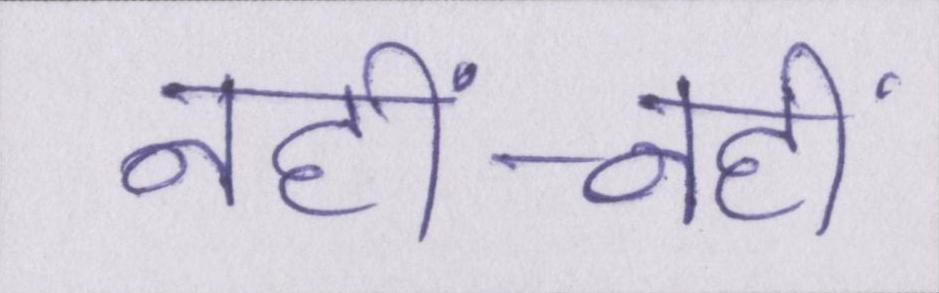 नहीं-नहीं